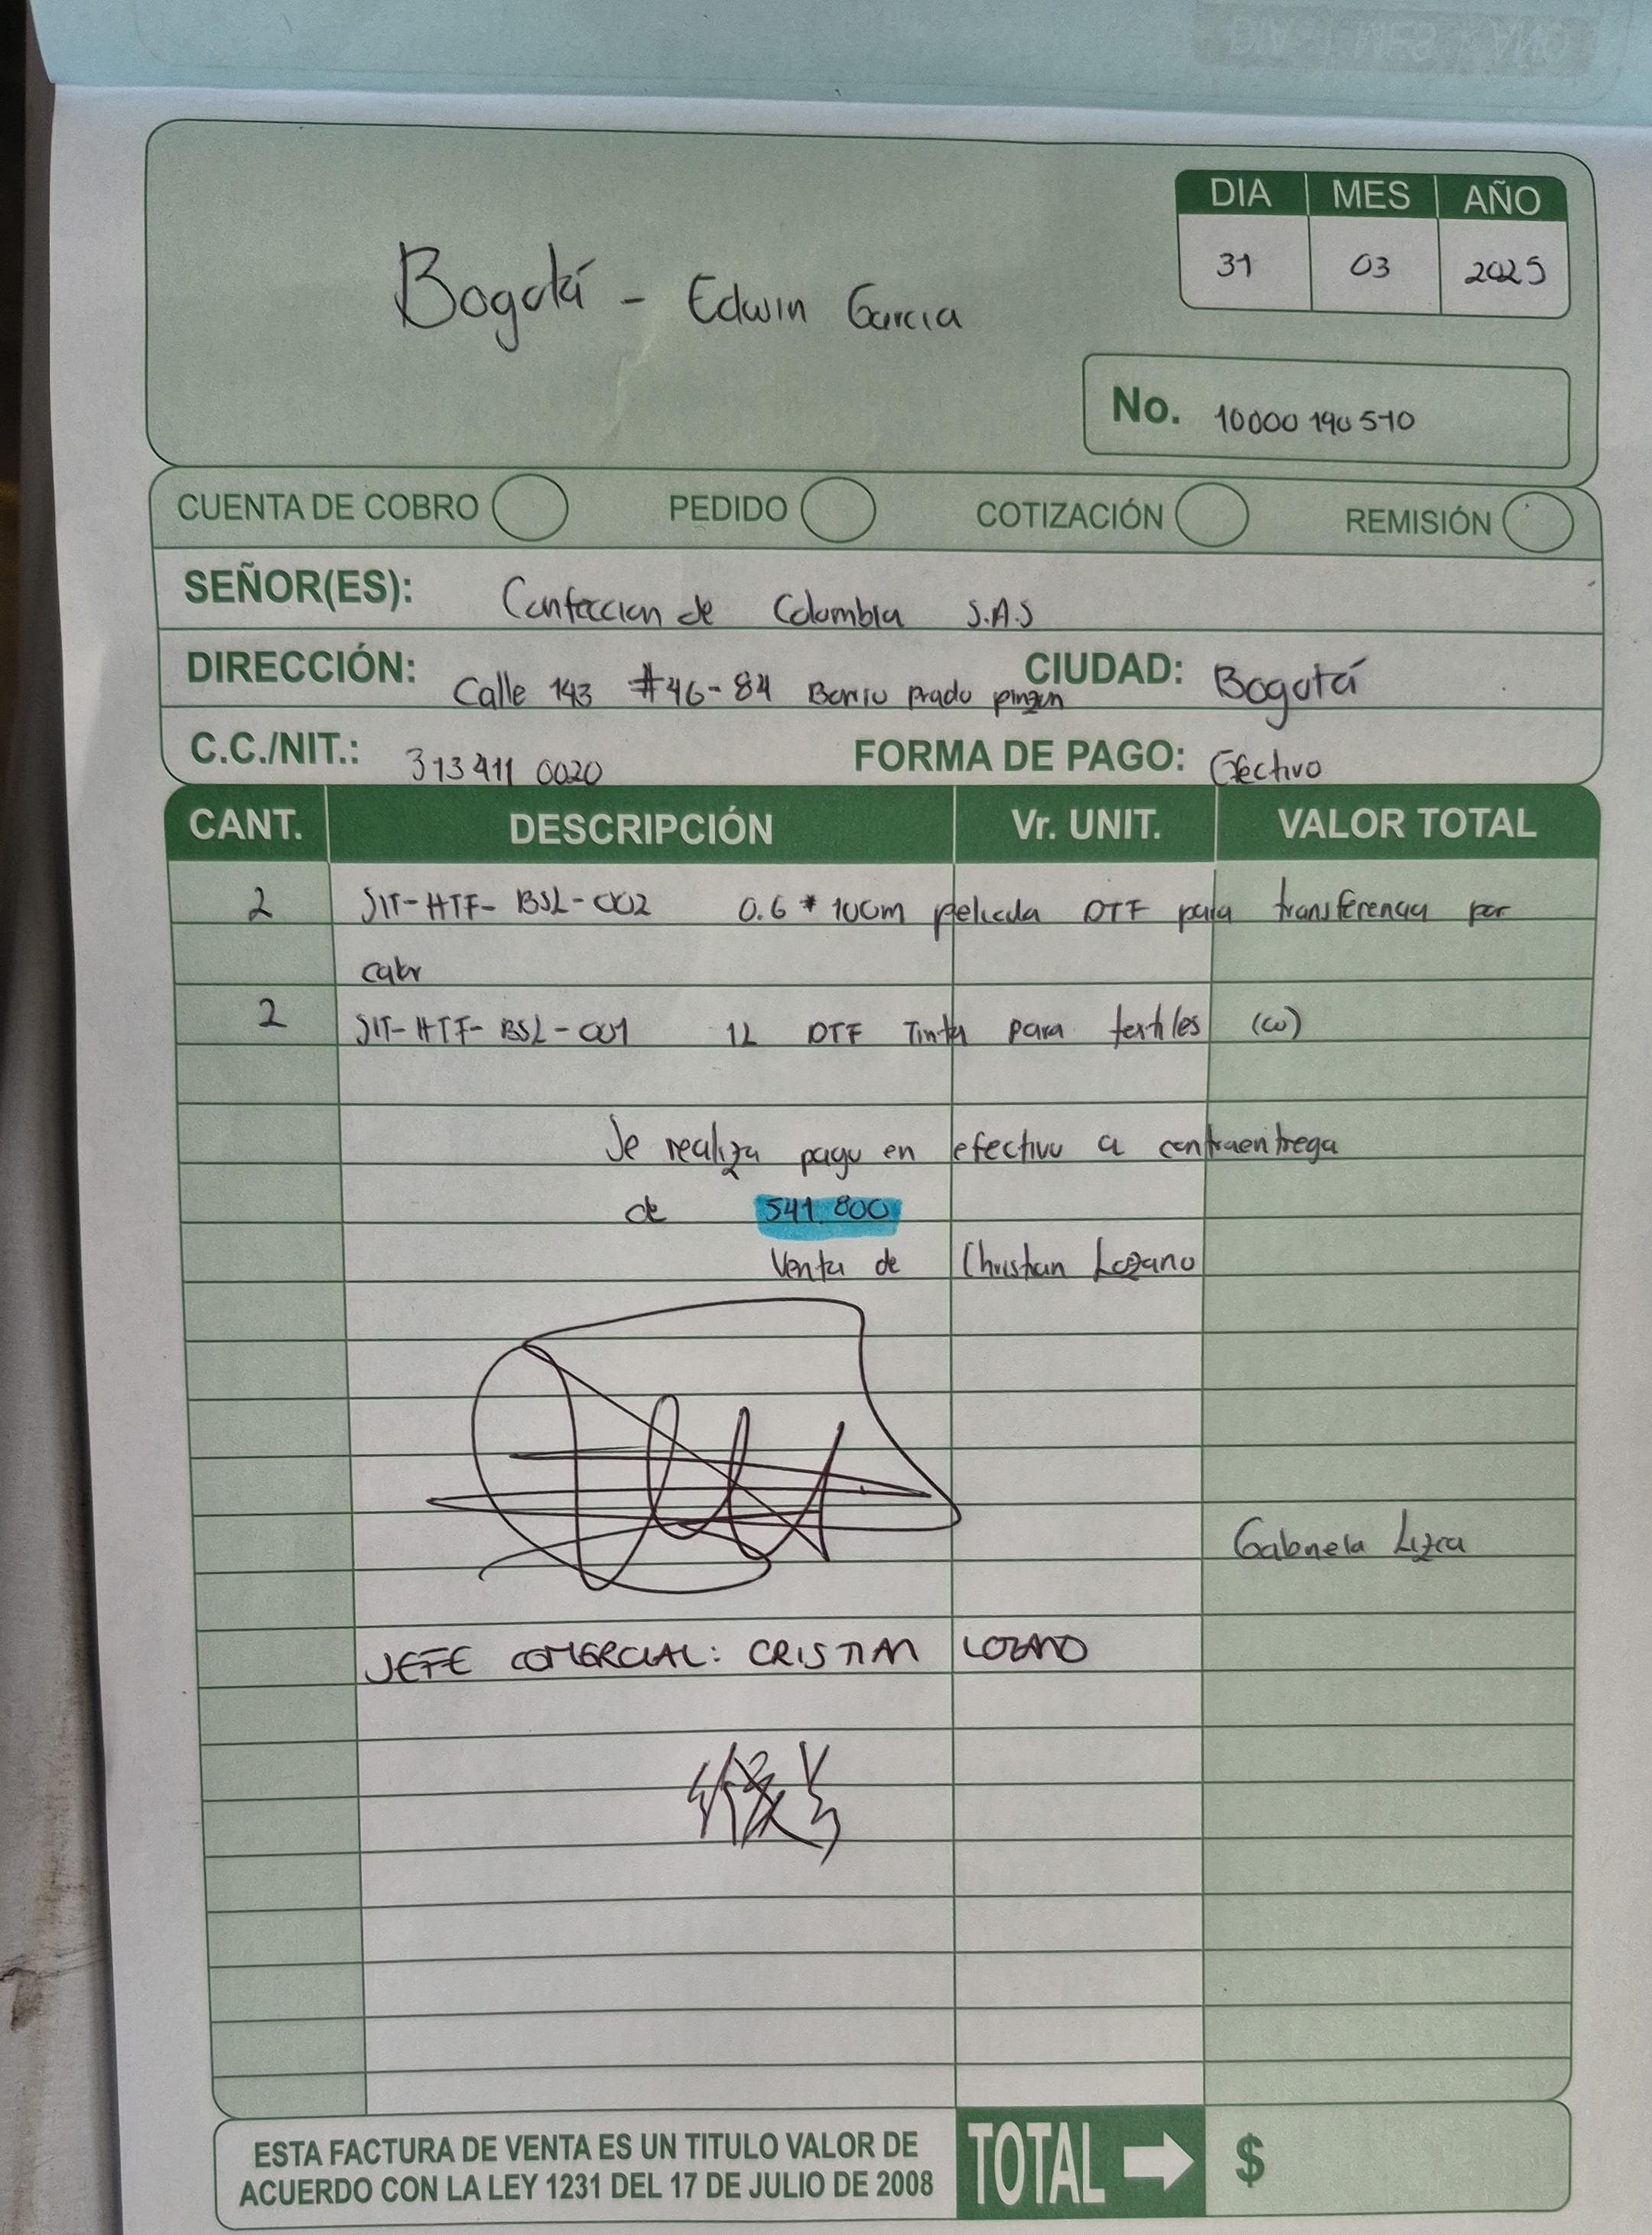 DIA MES AÑO
31 03 2025
Bogotá - Edwin Garcia
No. 10000190510
CUENTA DE COBRO PEDIDO COTIZACIÓN REMISIÓN
SEÑOR(ES): Confeccion de Colombia S.A.S
DIRECCIÓN: Calle 143 #46-84 Barrio prado pinzon CIUDAD: Bogotá
C.C./NIT.: 313 411 0020 FORMA DE PAGO: Efectivo
CANT. DESCRIPCIÓN Vr. UNIT. VALOR TOTAL
2 SIT-HTF-BSL-002 0.6 * 100m pelicula DTF para transferencia por
calor
2 SIT-HTF-BSL-001 1L DTF Tinta para textiles (w)
Se realiza pago en efectivo a contraentrega
de 541.800
Venta de Christian Lozano
Gabriela Lizca
JEFE COMERCIAL: CRISTIAN LOZANO
ESTA FACTURA DE VENTA ES UN TITULO VALOR DE
ACUERDO CON LA LEY 1231 DEL 17 DE JULIO DE 2008
TOTAL $